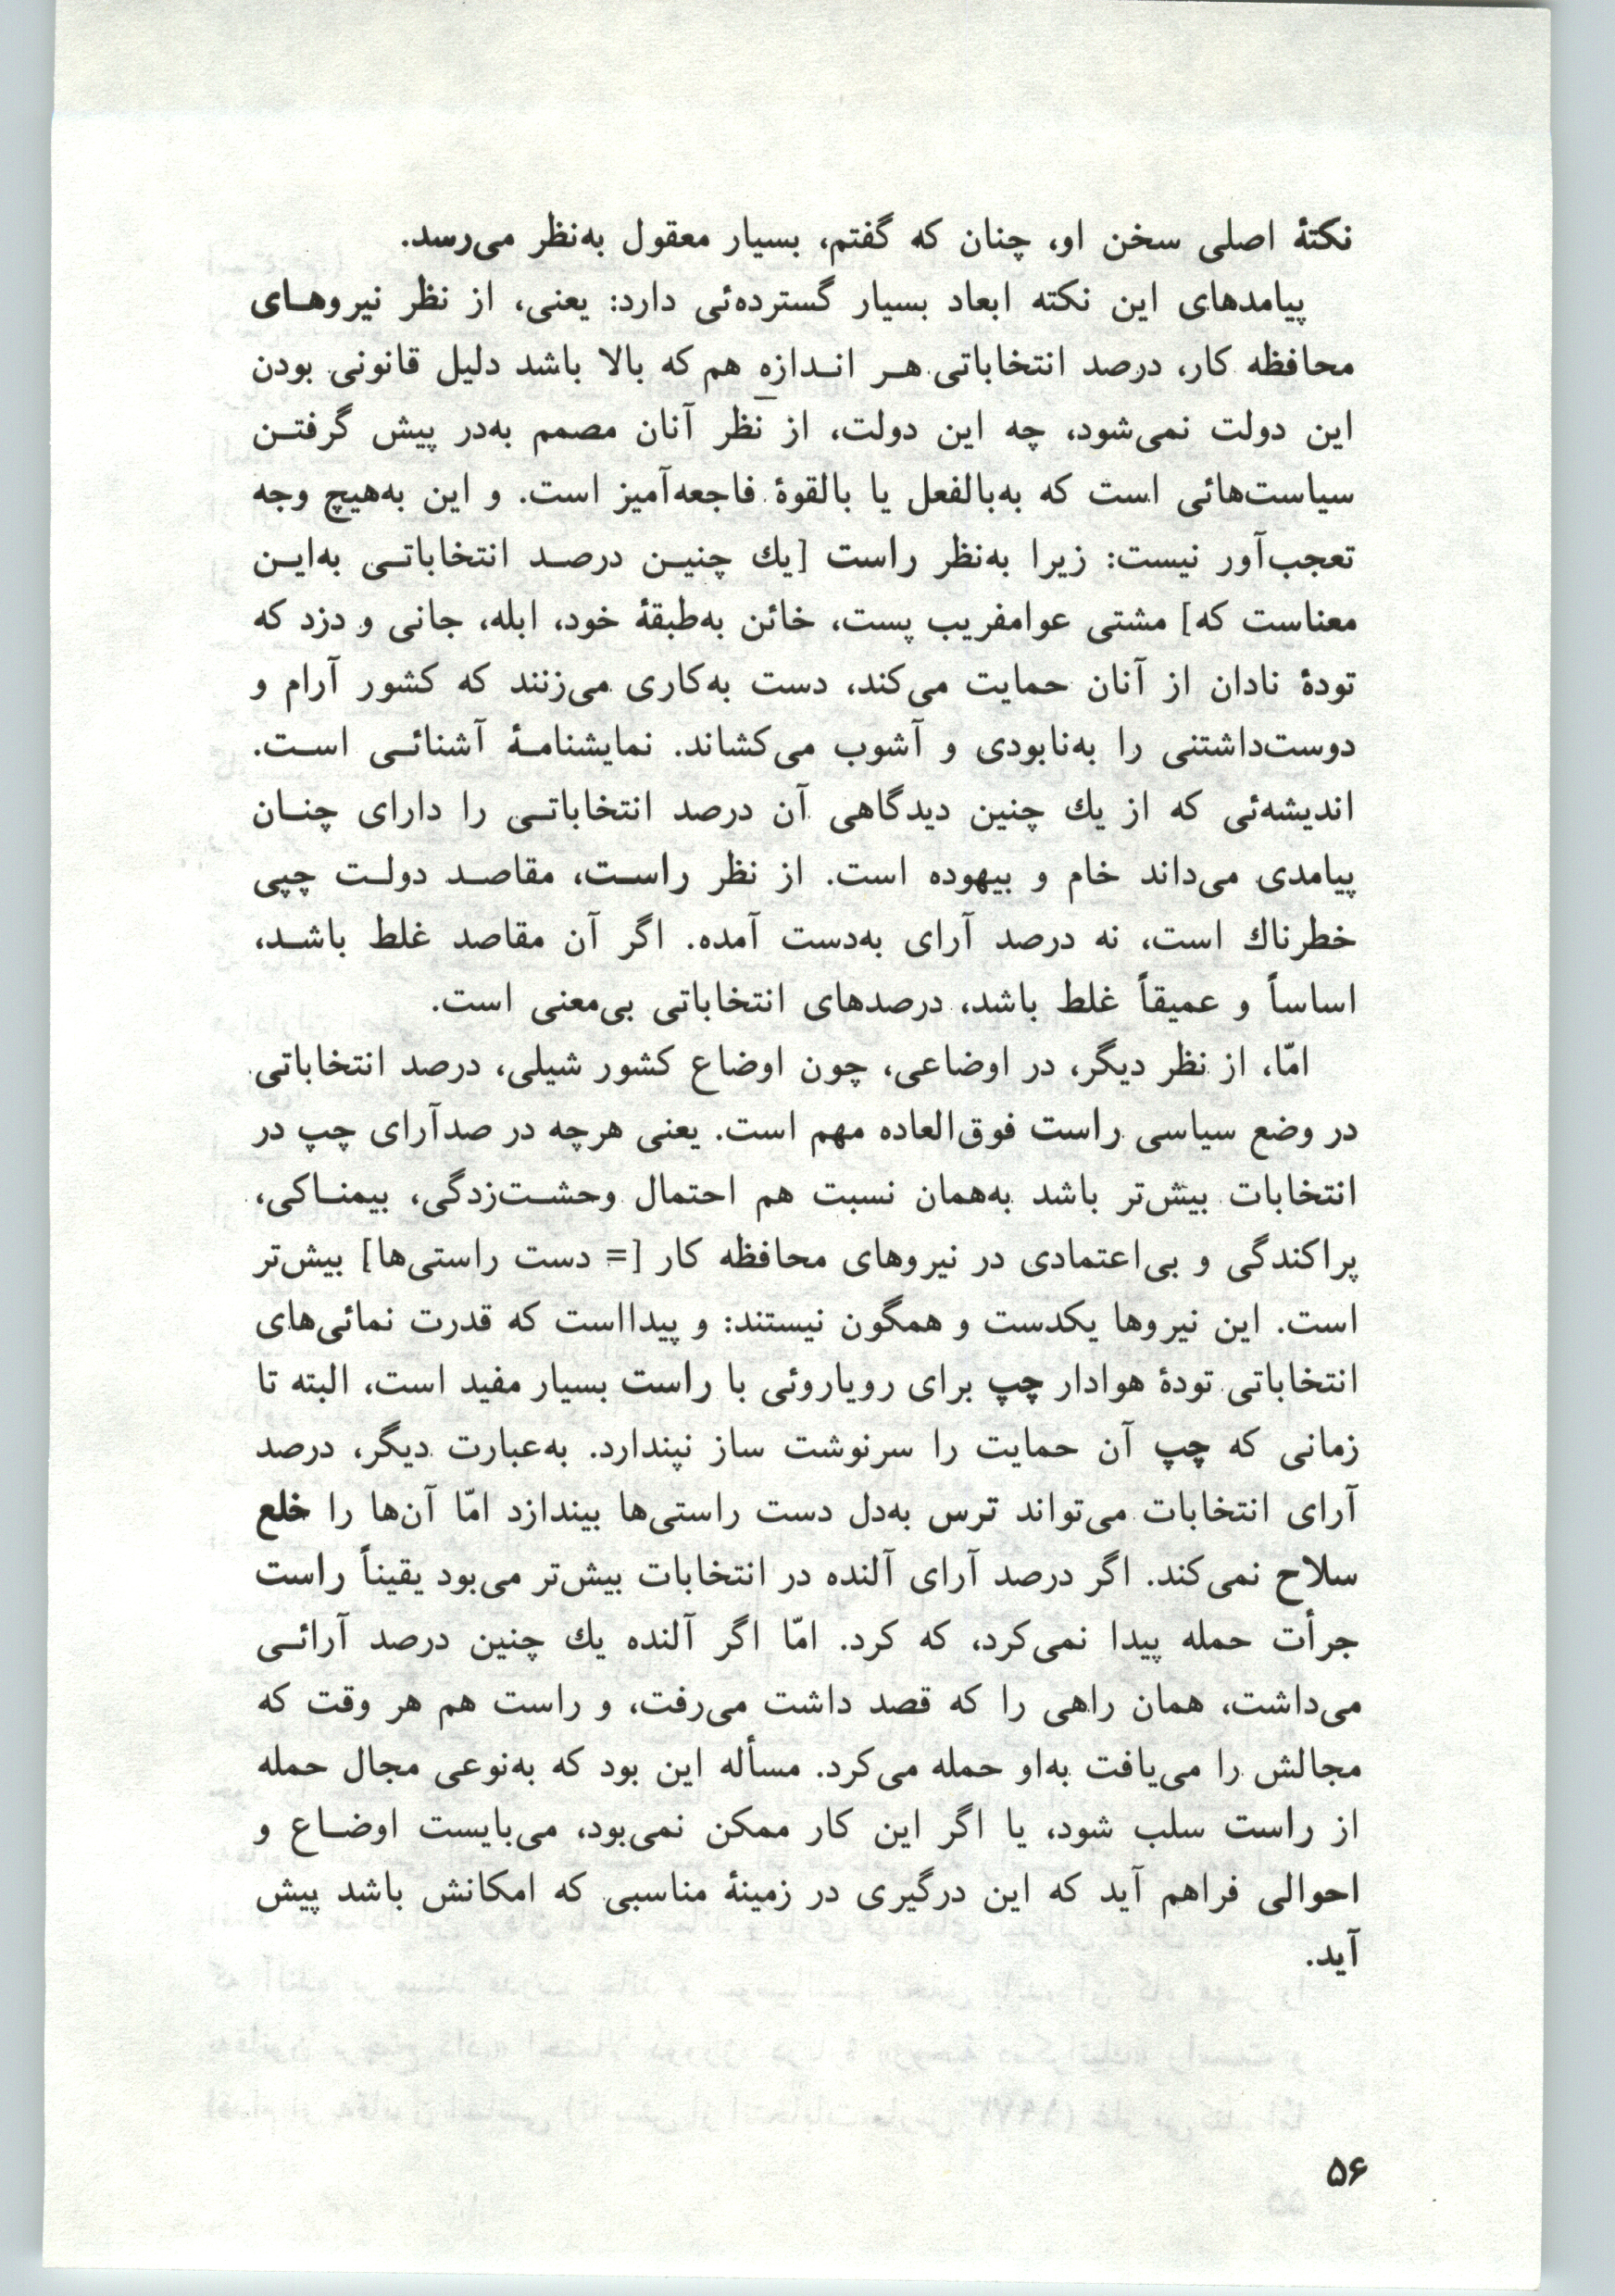 نکتهٔ اصلی سخن او، چنان که گفتم، بسیار معقول به‌نظر می‌رسد.
پیامدهای این نکته ابعاد بسیار گسترده‌ئی دارد: یعنی، از نظر نیروهـای
محافظه کار، درصد انتخاباتی هـر انـدازه هم که بالا باشد دلیل قانونی بودن
این دولت نمی‌شود، چه این دولت، از نظر آنان مصمم به‌در پیش گرفتـن
سیاست‌هائی است که به‌بالفعل یا بالقوهٔ فاجعه‌آمیز است. و این به‌هیچ وجه
تعجب‌آور نیست: زیرا به‌نظر راست [یك چنیـن درصـد انتخاباتـی به‌ایـن
معناست که] مشتی عوامفریب پست، خائن به‌طبقهٔ خود، ابله، جانی و دزد که
تودهٔ نادان از آنان حمایت می‌کند، دست به‌کاری می‌زنند که کشور آرام و
دوست‌داشتنی را به‌نابودی و آشوب می‌کشاند. نمایشنامـهٔ آشنائـی اسـت.
اندیشه‌ئی که از یك چنین دیدگاهی آن درصد انتخاباتـی را دارای چنـان
پیامدی می‌داند خام و بیهوده است. از نظر راسـت، مقاصـد دولـت چپی
خطرناك است، نه درصد آرای به‌دست آمده. اگر آن مقاصد غلط باشـد،
اساساً و عمیقاً غلط باشد، درصدهای انتخاباتی بی‌معنی است.
امّا، از نظر دیگر، در اوضاعی، چون اوضاع کشور شیلی، درصد انتخاباتی
در وضع سیاسی راست فوق‌العاده مهم است. یعنی هرچه در صدآرای چپ در
انتخابات بیش‌تر باشد به‌همان نسبت هم احتمال وحشـت‌زدگی، بیمنـاکی،
پراکندگی و بی‌اعتمادی در نیروهای محافظه کار [= دست راستی‌ها] بیش‌تر
است. این نیروها یکدست و همگون نیستند: و پیدااست که قدرت نمائی‌های
انتخاباتی تودهٔ هوادار چپ برای رویاروئی با راست بسیار مفید است، البته تا
زمانی که چپ آن حمایت را سرنوشت ساز نپندارد. به‌عبارت دیگر، درصد
آرای انتخابات می‌تواند ترس به‌دل دست راستی‌ها بیندازد امّا آن‌ها را خلع
سلاح نمی‌کند. اگر درصد آرای آلنده در انتخابات بیش‌تر می‌بود یقیناً راست
جرأت حمله پیدا نمی‌کرد، که کرد. امّا اگر آلنده یك چنین درصد آرائـی
می‌داشت، همان راهی را که قصد داشت می‌رفت، و راست هم هر وقت که
مجالش را می‌یافت به‌او حمله می‌کرد. مسأله این بود که به‌نوعی مجال حمله
از راست سلب شود، یا اگر این کار ممکن نمی‌بود، می‌بایست اوضـاع و
احوالی فراهم آید که این درگیری در زمینهٔ مناسبی که امکانش باشد پیش
آید.
۵۶